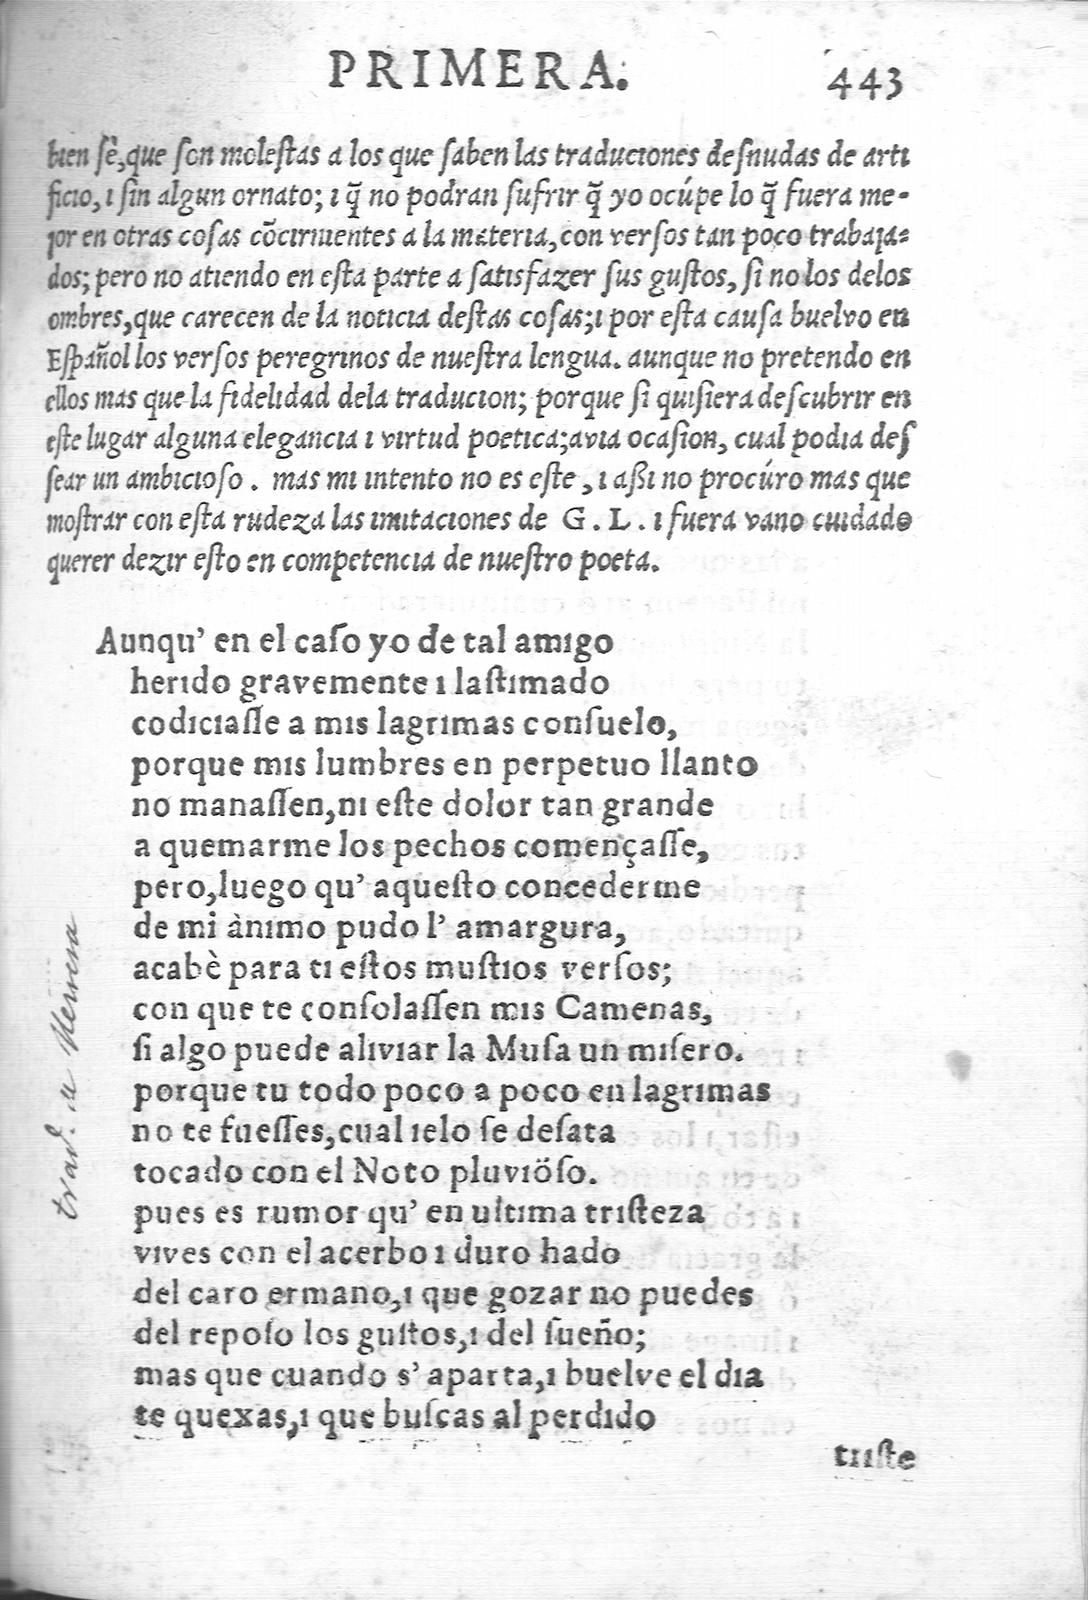 PRIMERA. 443
bien sè, que son molestas a los que saben las traduciones desnudas de arti
ficio, ı sin algun ornato; ı q̃ no podran sufrir q̃ yo ocúpe lo q̃ fuera me-
jor en otras cosas cõcirnientes a la materia, con versos tan poco trabaja-
dos; pero no atiendo en esta parte a satisfazer sus gustos, si no los delos
ombres, que carecen de la noticia destas cosas; ı por esta causa buelvo en
Español los versos peregrinos de nuestra lengua. aunque no pretendo en
ellos mas que la fidelidad dela traducion; porque si quisiera descubrir en
este lugar alguna elegancia ı virtud poetica; avia ocasion, cual podia des
sear un ambicioso. mas mi intento no es este, ı assi no procúro mas que
mostrar con esta rudeza las imitaciones de G. L. ı fuera vano cuidado
querer dezir esto en competencia de nuestro poeta.
Aunqu' en el caso yo de tal amigo
herido gravemente ı lastimado
codiciasse a mis lagrimas consuelo,
porque mis lumbres en perpetuo llanto
no manassen, ni este dolor tan grande
a quemarme los pechos começasse,
pero, luego qu' aquesto concederme
de mi ànimo pudo l' amargura,
acabè para ti estos mustios versos;
con que te consolassen mis Camenas,
si algo puede aliviar la Musa un misero.
porque tu todo poco a poco en lagrimas
no te fuesses, cual ielo se desata
tocado con el Noto pluviöso.
pues es rumor qu' en ultima tristeza
vives con el acerbo ı duro hado
del caro ermano, ı que gozar no puedes
del reposo los gustos, ı del sueño;
mas que cuando s' aparta, ı buelve el dia
te quexas, ı que buscas al perdido
triste
trad. de Herrera